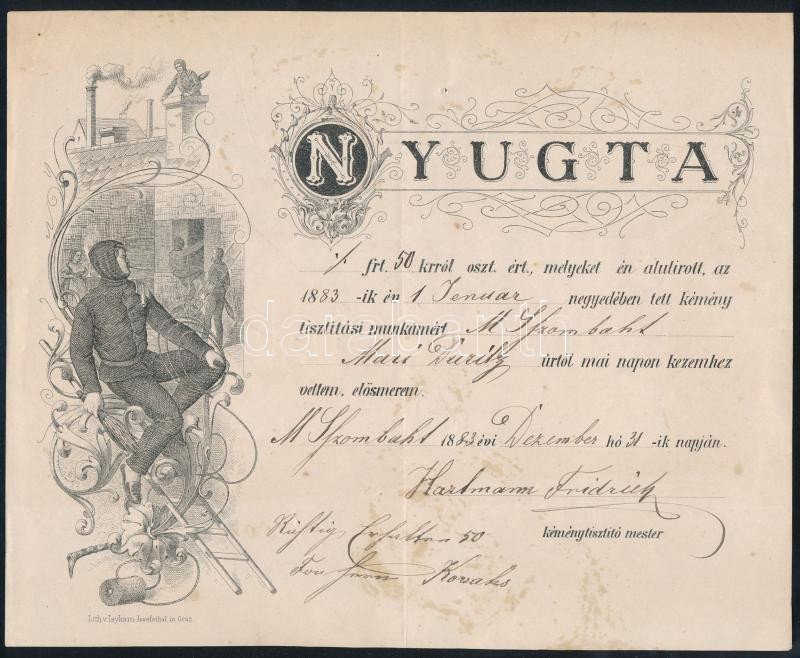 NYUGTA
% frt. 50 krról oszt. ért., melyeket én alulirott, az
1883 -ik én 1 Jenuar negyedében tett kémény
tisztitási munkámért M Szombaht
Mari Duritz úrtól mai napon kezemhez
vettem, elösmerem.
M Szombaht 1883 évi Dezember hó 31 -ik napján.
Hartmann Fridrich
kéménytisztitó mester
Richtig Erhalten 50
Fon Herrn Kovaks
Lith. v. Leykam-Josefsthal in Graz.
darabanth